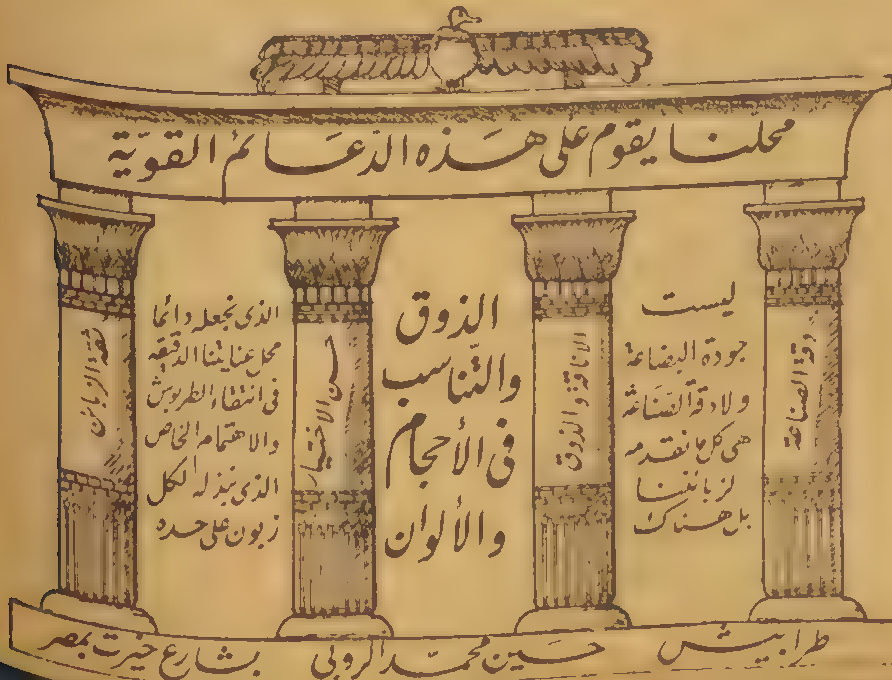 محلنا يقوم على هذه الدعائم القويّة
دقة الصناعة
ليست
جودة البضاعة
ولا دقة الصناعة
هى كل ما نقدمه
لزبائننا
بل هناك
الاناقة والذوق
الذوق
والتّناسب
فى الأحجام
والألوان
حسن الاختيار
الذى نجعله دائما
محل عنايتنا الدقيقه
فى انتقاء الطربوش
والاهتمام الخاص
الذى نبذله لكل
زبون على حده
ثقة الزبائن
طرابيش حسين محمّد الروبى بشارع خيرت بمصر